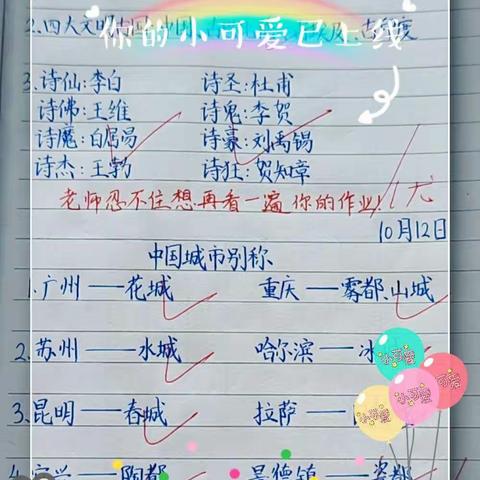 你的小可爱已上线
2.四大文明
3.诗仙:李白 诗圣:杜甫
诗佛:王维 诗鬼:李贺
诗魔:白居易 诗豪:刘禹锡
诗杰:王勃 诗狂:贺知章
老师忍不住想再看一遍你的作业! 优
10月12日
中国城市别称
1.广州——花城 重庆——雾都、山城
2.苏州——水城 哈尔滨——冰
3.昆明——春城 拉萨——
4.宜兴——陶都 景德镇——瓷都
小可爱
小可爱
小可爱
可爱